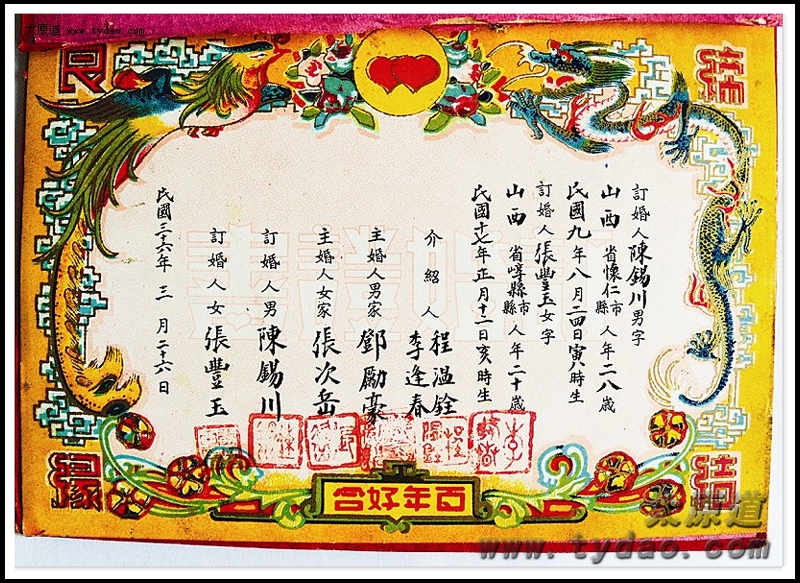 太原道 www.tydao.com
訂婚人陳錫川男字
山西省懷仁市縣人年二八歲
民國九年八月二四日寅八時生
訂婚人張豐玉女字
山西省崞縣市縣人年二十歲
民國十七年正月十二日亥時生
介紹人程溫銓
李逢春
主婚人男家鄧勵豪
主婚人女家張次岳
訂婚人男陳錫川
訂婚人女張豐玉
民國三十六年三月二十六日
訂婚證書
百年好合
太原道
www.tydao.com